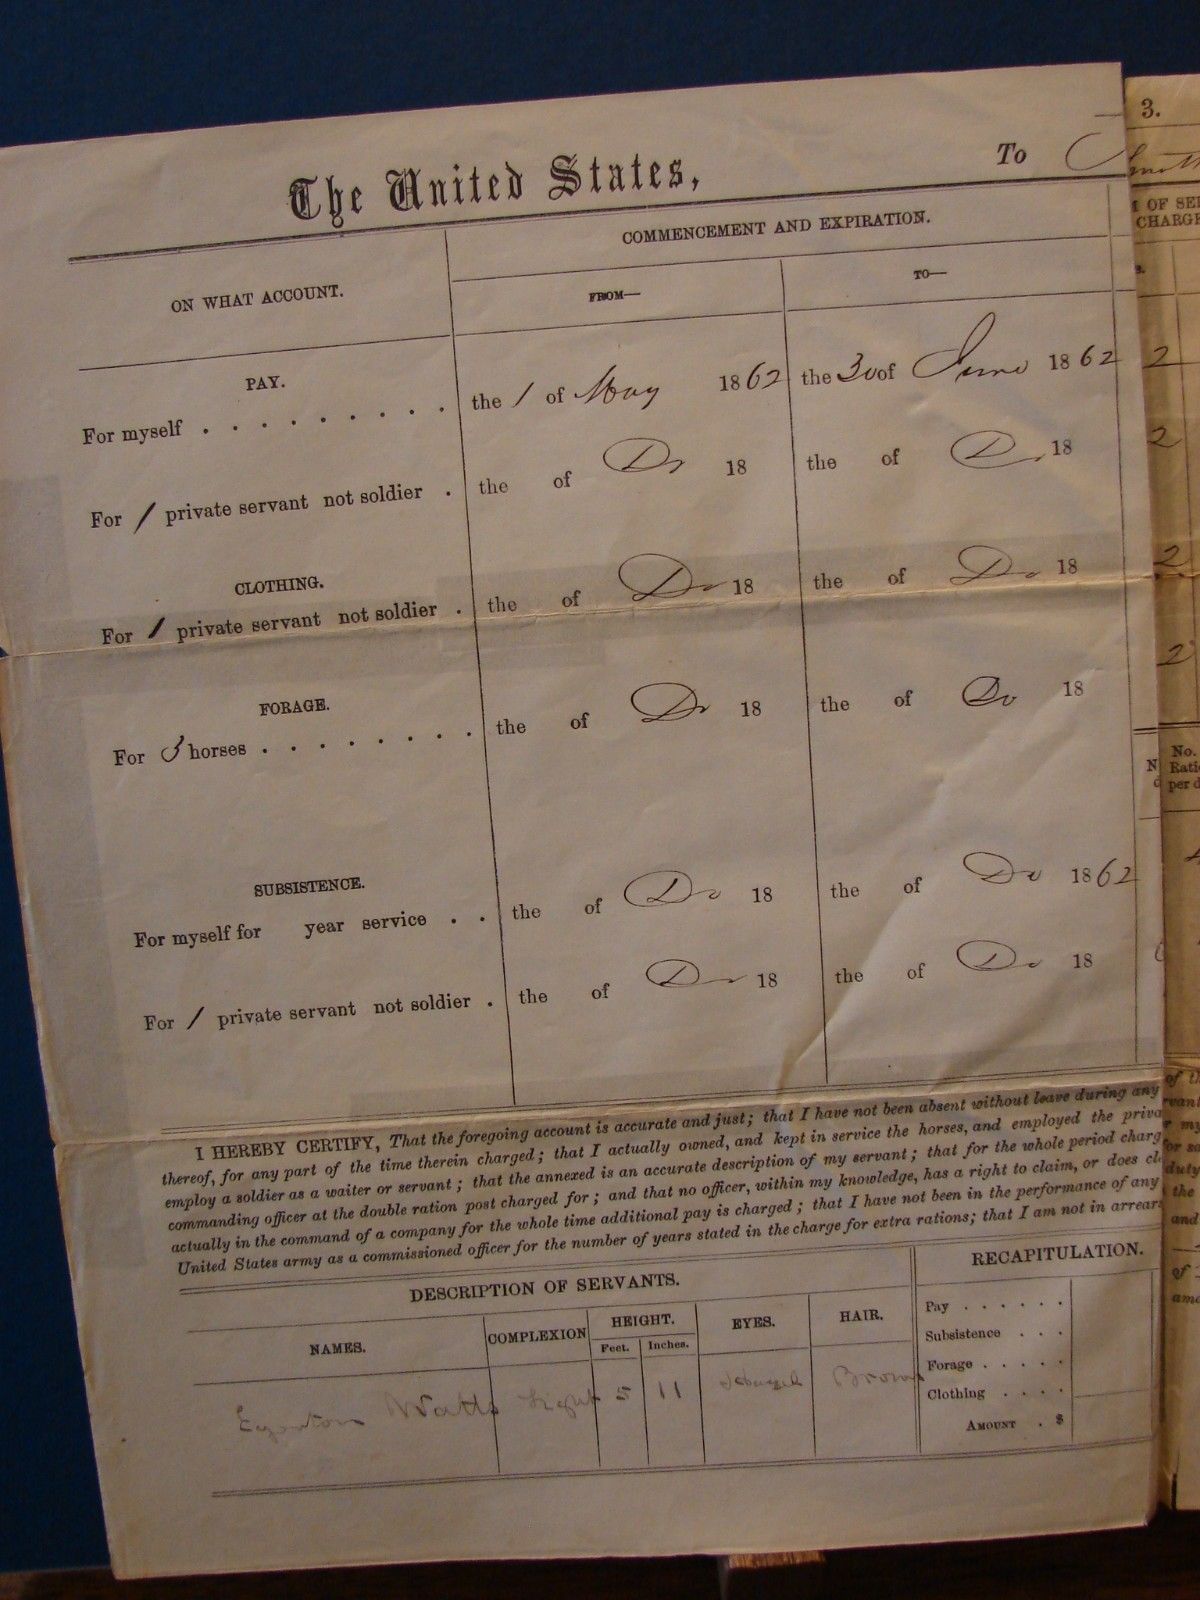 3.
The United States, To
OF
CHARGE
ON WHAT ACCOUNT.
COMMENCEMENT AND EXPIRATION.
FROM—
TO—
PAY.
For myself . . . . . . . . . the 1 of May 1862 the 30 of June 1862 2
For 1 private servant not soldier . the of Do 18 the of Do 18 2
CLOTHING.
For 1 private servant not soldier . the of Do 18 the of Do 18 2
FORAGE.
For 3 horses . . . . . . . . the of Do 18 the of Do 18 2
No.
per d
SUBSISTENCE.
For myself for year service . . the of Do 18 the of Do 1862
For 1 private servant not soldier . the of Do 18 the of Do 18
I HEREBY CERTIFY, That the foregoing account is accurate and just; that I have not been absent without leave during any
thereof, for any part of the time therein charged; that I actually owned, and kept in service the horses, and employed the priva
employ a soldier as a waiter or servant; that the annexed is an accurate description of my servant; that for the whole period charg
commanding officer at the double ration post charged for; and that no officer, within my knowledge, has a right to claim, or does cl
actually in the command of a company for the whole time additional pay is charged; that I have not been in the performance of any
United States army as a commissioned officer for the number of years stated in the charge for extra rations; that I am not in arrears
DESCRIPTION OF SERVANTS.
NAMES. COMPLEXION HEIGHT. EYES. HAIR.
Feet. Inches.
Watts Light 5 11 Brown
RECAPITULATION.
Pay . . . . . .
Subsistence . . .
Forage . . . . .
Clothing . . . .
AMOUNT . $